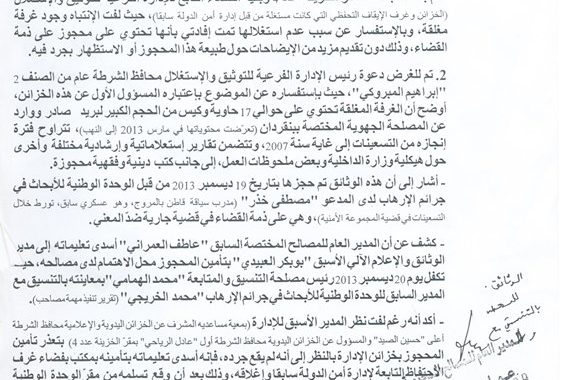 (الخزائن وغرف الإيقاف التحفظي التي كانت مستغلة من قبل إدارة أمن الدولة سابقا)، حيث لفت الإنتباه وجود غرفة
مغلقة، وبالإستفسار عن سبب عدم استغلالها تمت إفادتي بأنها تحتوي على محجوز على ذمة
القضاء، وذلك دون تقديم مزيد من الإيضاحات حول طبيعة هذا المحجوز أو الاستظهار بجرد فيه.
2. تم للغرض دعوة رئيس الإدارة الفرعية للتوثيق والإستغلال محافظ الشرطة عام من الصنف 2
"إبراهيم المبروكي"، حيث بإستفساره عن الموضوع بإعتباره المسؤول الأول عن هذه الخزائن،
أوضح أن الغرفة المغلقة تحتوي على حوالي 17 حاوية وكيس من الحجم الكبير لبريد صادر ووارد
عن المصلحة الجهوية المختصة ببنقردان (تعرّضت محتوياتها في مارس 2013 إلى النهب)، تتراوح فترة
إنجازه من التسعينات إلى غاية سنة 2007، وتتضمن تقارير إستعلاماتية وإرشادية مختلفة وأخرى
حول هيكلية وزارة الداخلية وبعض ملحوظات العمل، إلى جانب كتب دينية وفقهية محجوزة.
- أشار إلى أن هذه الوثائق تم حجزها بتاريخ 19 ديسمبر 2013 من قبل الوحدة الوطنية للأبحاث في
جرائم الإرهاب لدى المدعو "مصطفى خذر" (مدرب سياقة قاطن بالمروج، وهو عسكري سابق، تورط خلال
التسعينات في قضية المجموعة الأمنية)، وهي على ذمة القضاء في قضية جارية ضدّ المعني.
- كشف عن أن المدير العام للمصالح المختصة السابق "عاطف العمراني" أسدى تعليماته إلى مدير
الوثائق والإعلام الآلي الأسبق "بوبكر العبيدي" بتأمين المحجوز محل الاهتمام لدى مصالحه، حيث
تكفل يوم 20 ديسمبر 2013 رئيس مصلحة التنسيق والمتابعة "محمد الهمامي" بمعاينته بالتنسيق مع
المدير السابق للوحدة الوطنية للأبحاث في جرائم الإرهاب "محمد الخريجي" (تقرير تنفيذ مهمة مصاحب).
- أكد أنه رغم لفت نظر المدير الأسبق للإدارة (بمعية مساعديه المشرف عن الخزائن اليدوية والإعلامية محافظ الشرطة
أعلى "حسين الصيد" والمسؤول عن الخزائن اليدوية محافظ شرطة أول "عادل الرياحي" بمقرّ الخزينة عدد 4) بتعذر تأمين
المحجوز بخزائن الإدارة بالنظر إلى أنه لم يقع جرده، فإنه أسدى تعليماته بتأمينه بمكتب بفضاء غرف
الاحتفاظ التابعة لإدارة أمن الدولة سابقا وإغلاقه، وذلك بعد أن وقع تسلمه من مقرّ الوحدة الوطنية